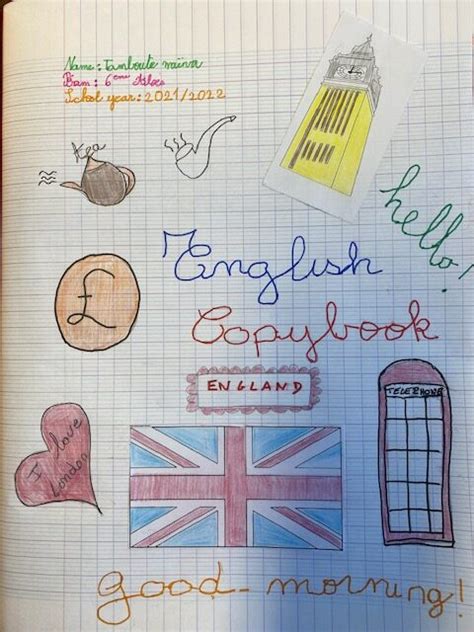 Name:
6eme
Schol year: 2021/2022
tea
hello!
£
English
Copybook
ENGLAND
TELEPHONE
I love
London
good-morning!